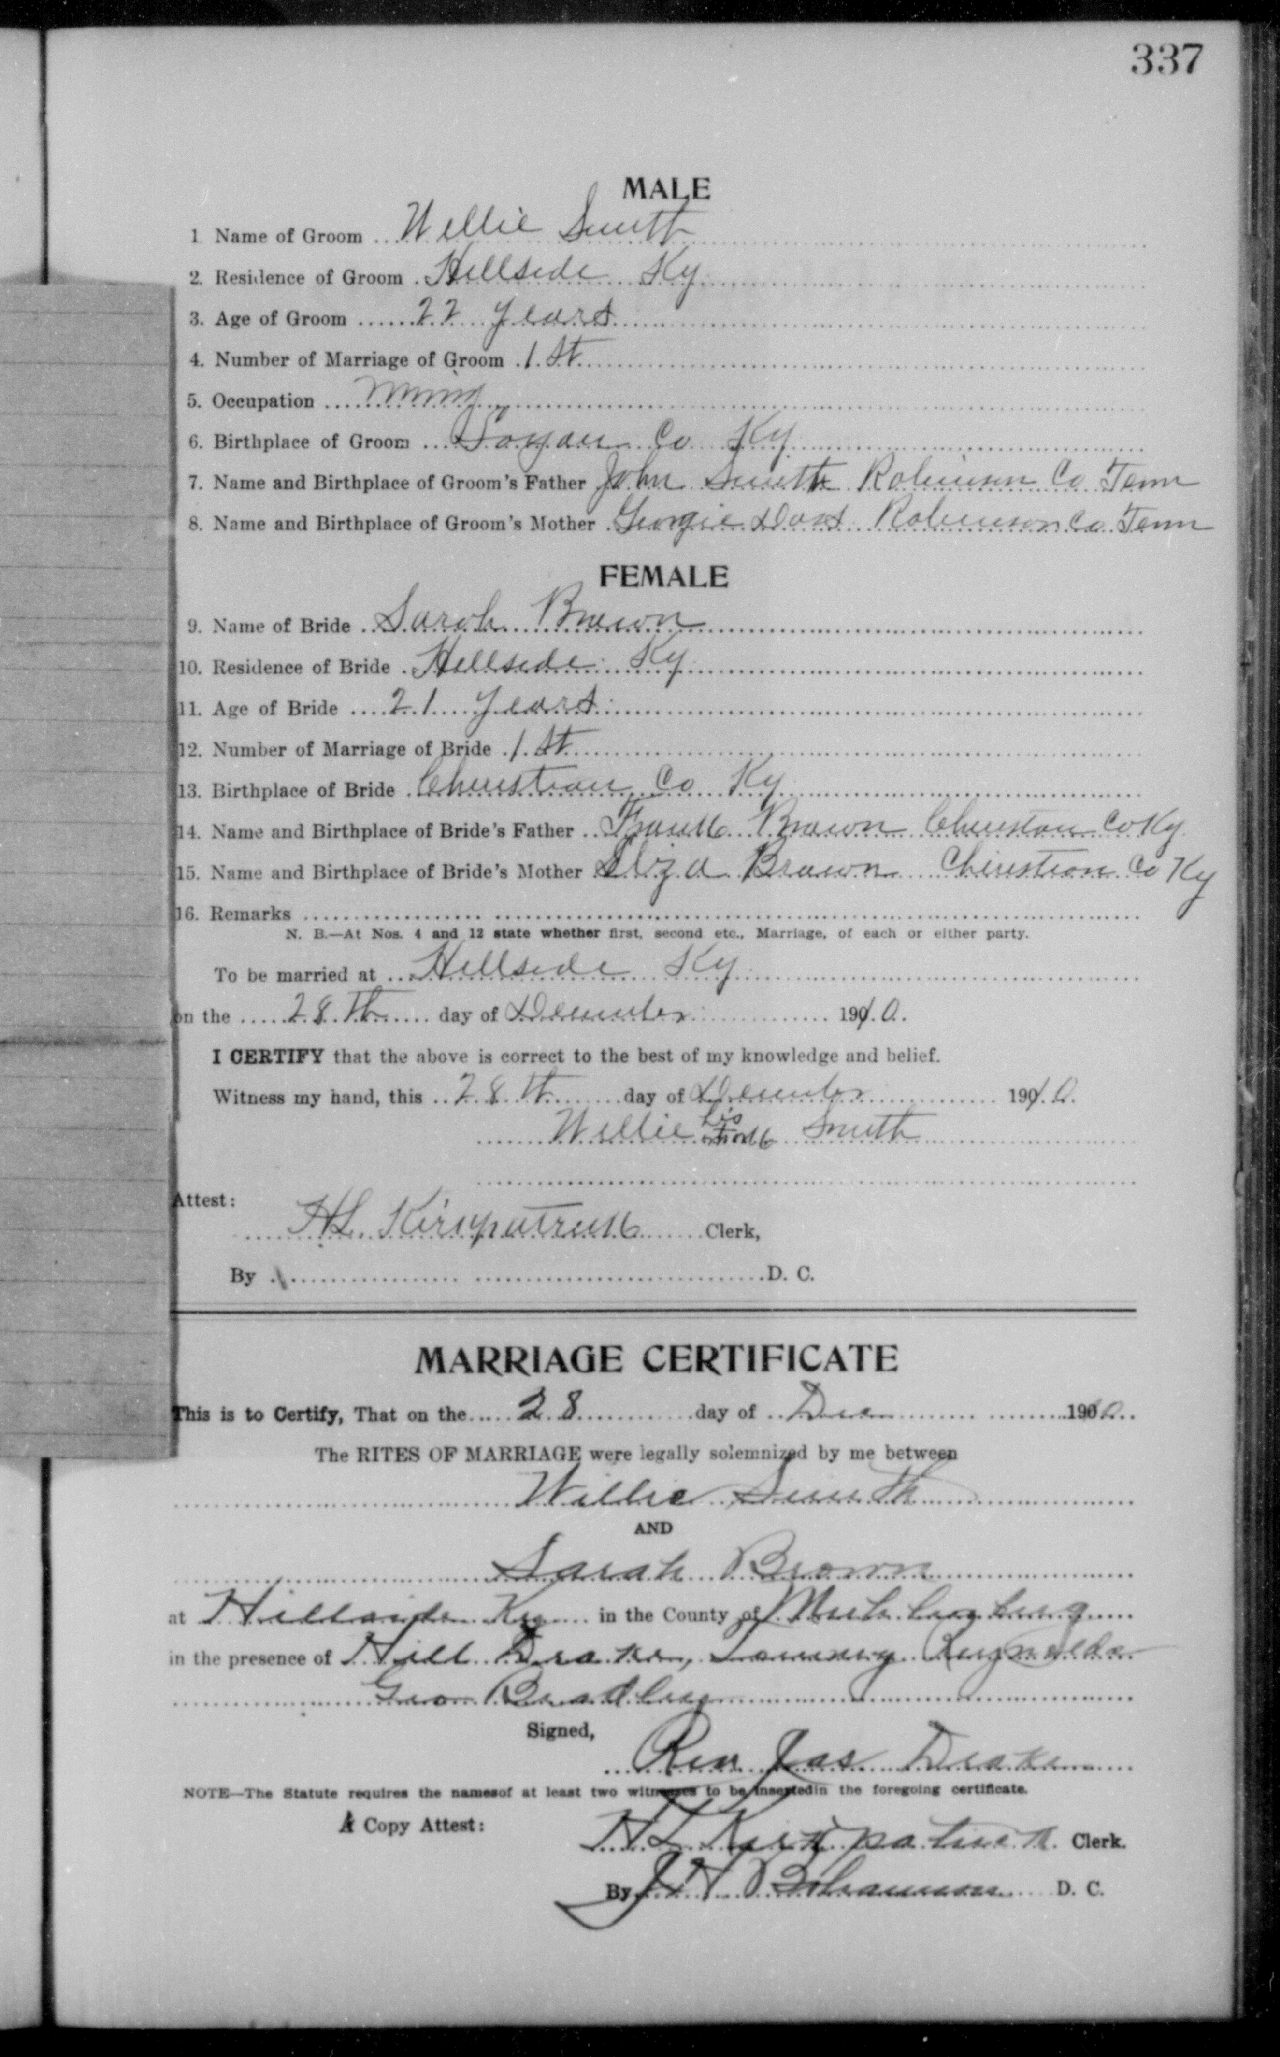 337
MALE
1 Name of Groom Willie Smith
2. Residence of Groom Hillside Ky
3. Age of Groom 22 years
4. Number of Marriage of Groom 1 st
5. Occupation Mining
6. Birthplace of Groom Co Ky
7. Name and Birthplace of Groom's Father John Smith Robinson Co Tenn
8. Name and Birthplace of Groom's Mother Georgie Robinson Co Tenn
FEMALE
9. Name of Bride Sarah Brown
10. Residence of Bride Hillside Ky
11. Age of Bride 21 years
12. Number of Marriage of Bride 1 st
13. Birthplace of Bride Christian Co Ky
14. Name and Birthplace of Bride's Father Frank Brown Christian Co Ky
15. Name and Birthplace of Bride's Mother Eliza Brown Christian Co Ky
16. Remarks
N. B.—At Nos. 4 and 12 state whether first, second etc., Marriage, of each or either party.
To be married at Hillside Ky
on the 28 th day of December 1910.
I CERTIFY that the above is correct to the best of my knowledge and belief.
Witness my hand, this 28 th day of December 1910.
Willie his mark Smith
Attest:
H L Kirkpatrick Clerk,
By D. C.
MARRIAGE CERTIFICATE
This is to Certify, That on the 28 day of Dec 1910
The RITES OF MARRIAGE were legally solemnized by me between
Willie Smith
AND
Sarah Brown
at Hillside Ky in the County of Muhlenberg
in the presence of Hill Drake, Reynolds
Geo Bradley
Signed,
Rev Jas Drake
NOTE—The Statute requires the namesof at least two witnesses to be insertedin the foregoing certificate.
A Copy Attest:
H L Kirkpatrick Clerk.
By J H Bohannon D. C.